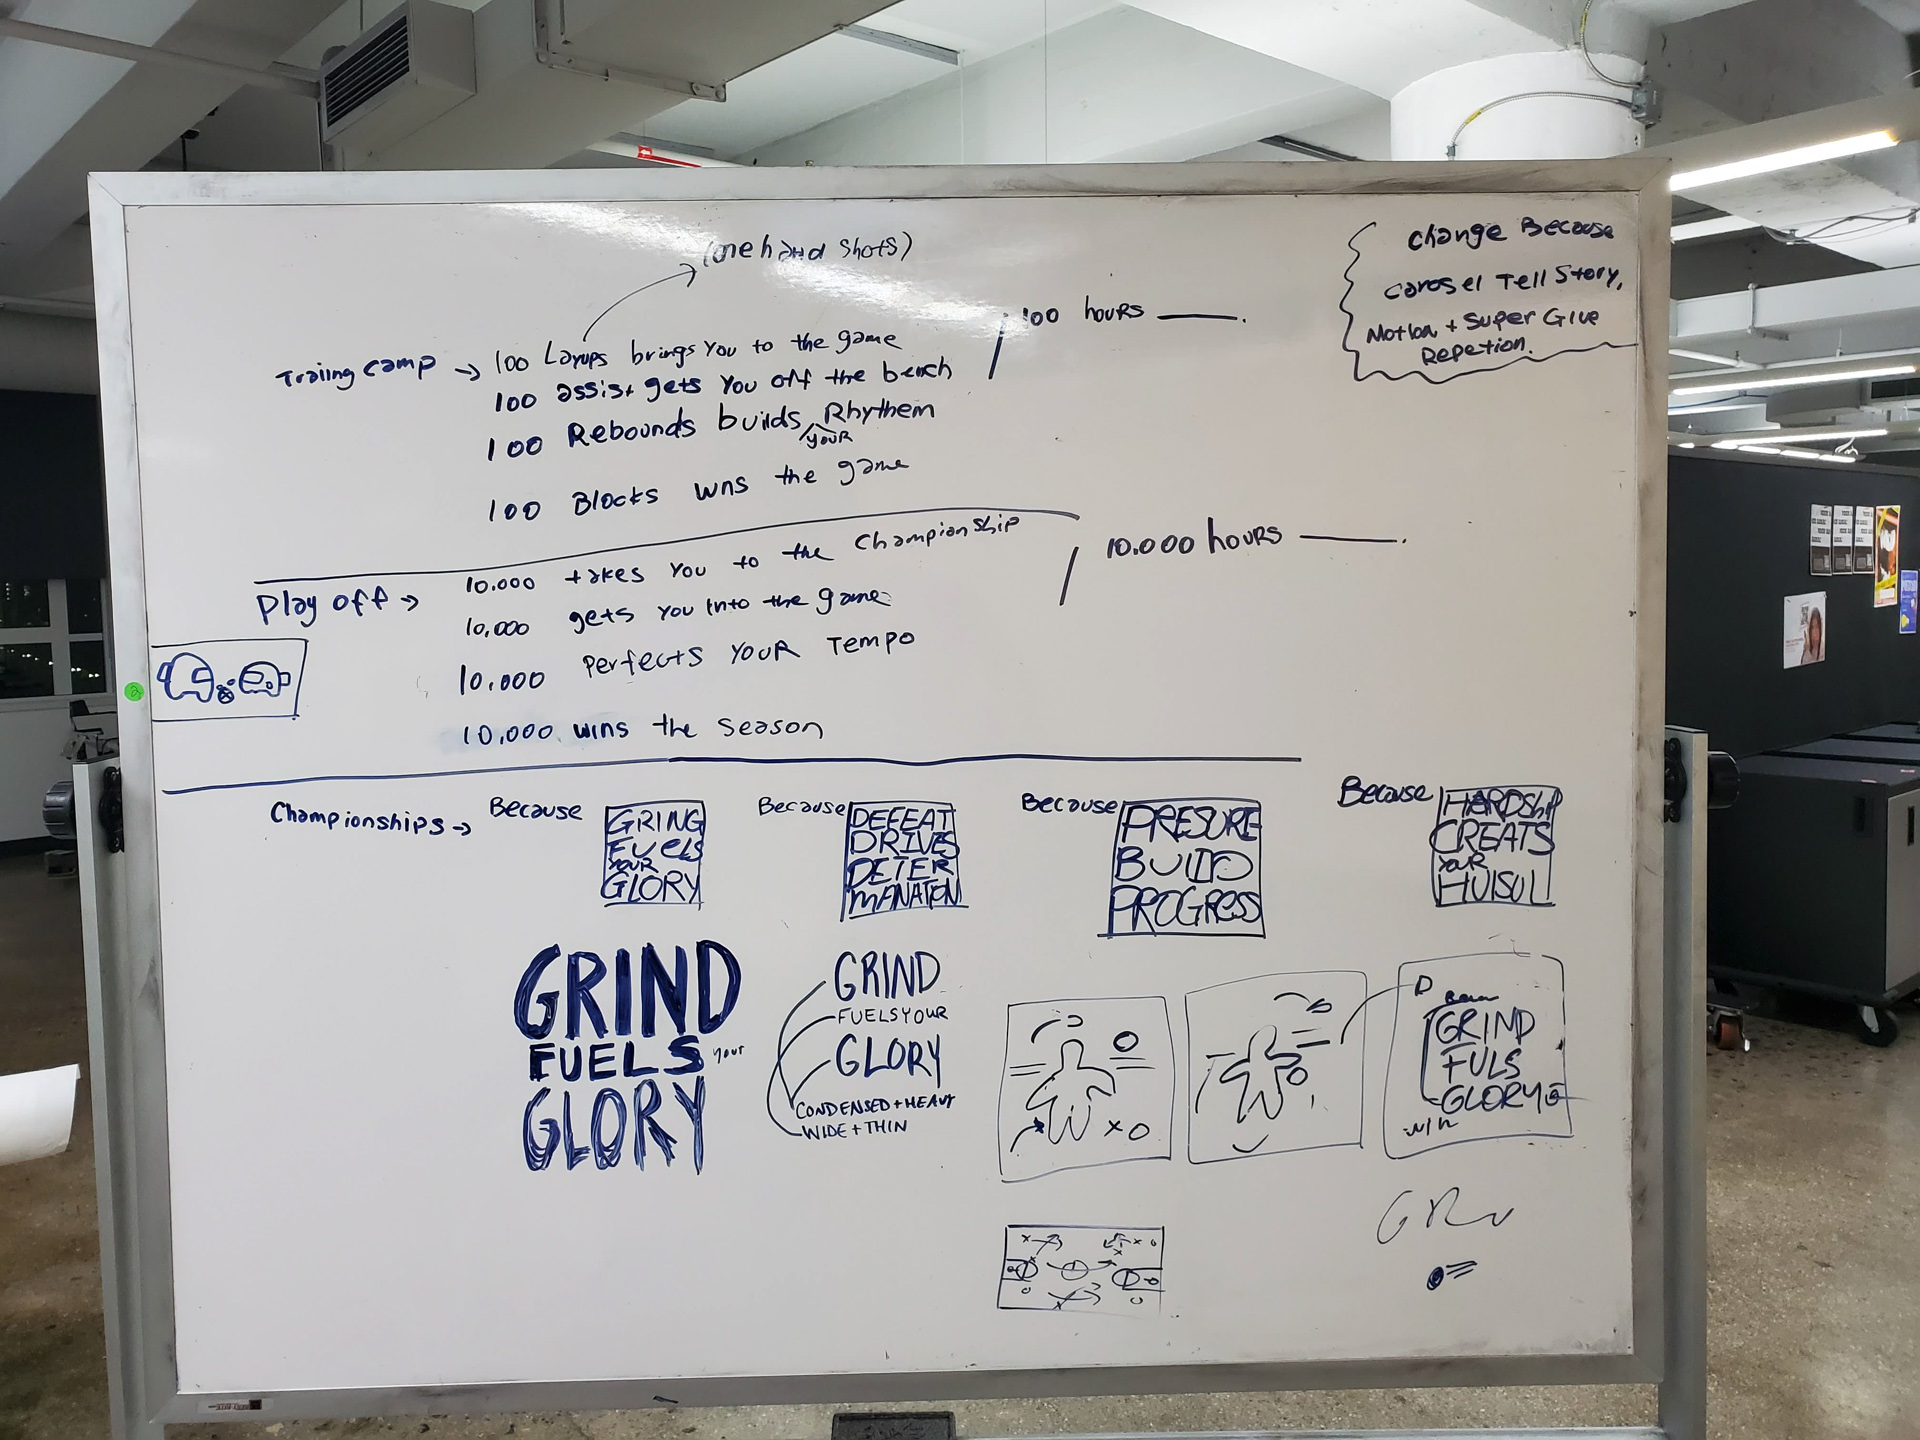 (one hand shots)
Change Because
Carosel Tell Story,
Motion + Super Give
Repetion.
100 hours
Trailing camp → 100 Layups brings you to the game
100 assist gets you off the bench
100 Rebounds builds your Rhythem
100 Blocks wns the game
10.000 hours
Play off → 10.000 takes you to the Championship
10,000 gets you into the game
10.000 Perfects YOUR Tempo
10.000 wins the season
2
Championships →
Because
GRING
FUELS
YOUR
GLORY
Because
DEFEAT
DRIVES
DETER
MANATION
Because
PRESURE
BUILD
PROGRESS
Because
HARDShip
CREATS
YOUR
GRIND
FUELS your
GLORY
GRIND
FUELS YOUR
GLORY
CONDENSED + HEAVY
WIDE + THIN
GRIND
FULS
GLORY
win